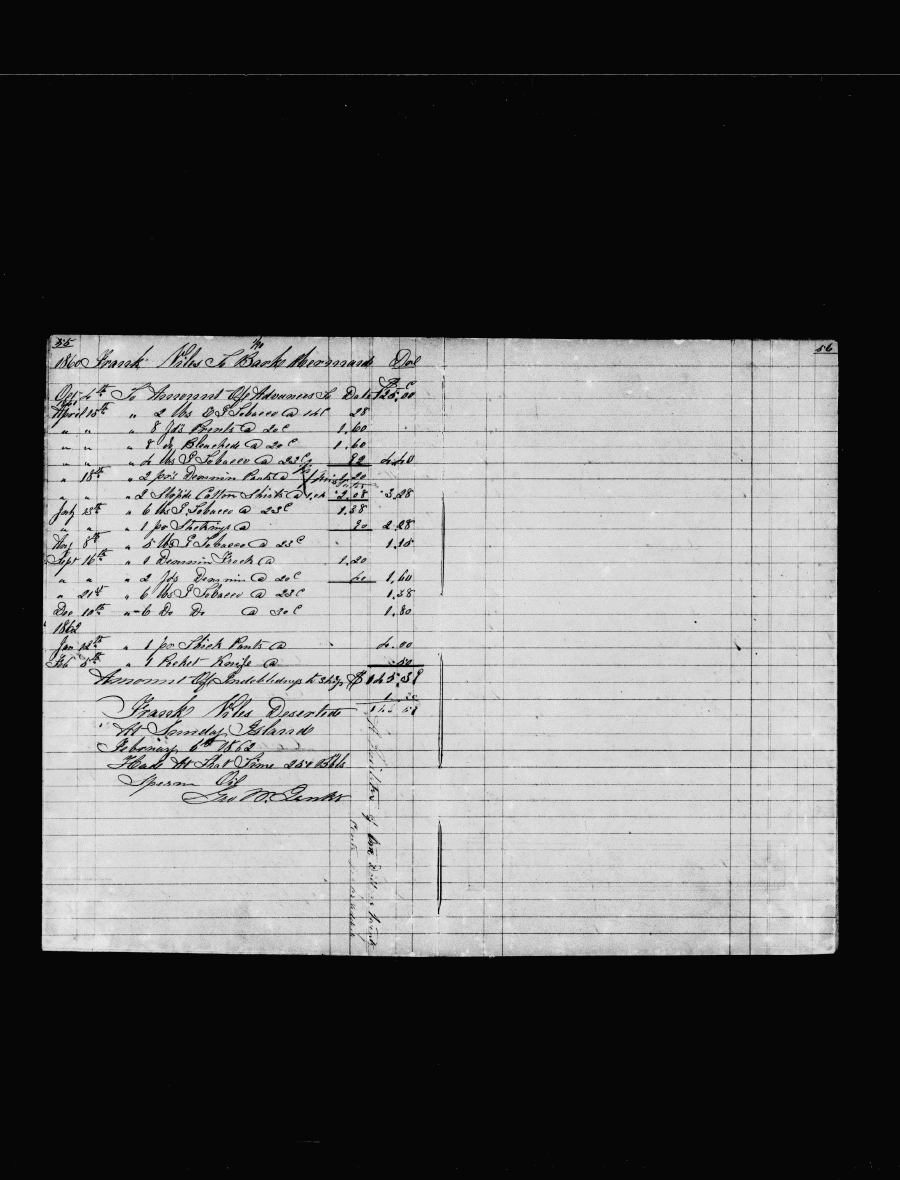 55
56
1860 Frank Niles To Bark Mermaid Dr
$ C
Oct 4th To Amount Of Advances To Date 125.00
April 15th " 2 lbs C S Tobacco @ 14c 28
" " " 8 yds Prents @ 20c 1.60
" " " 8 do Bleached @ 20c 1.60
" " " 4 lbs S Tobacco @ 23c 92 4.40
" 18th " 2 prs Demmin Pants @ 1.20
" " " 2 Cotton Shirts @ 1.04 2.08 3.28
July 25th " 6 lbs S Tobacco @ 23c 1.38
" " " 1 pr @ 90 2.28
Aug 8th " 5 lbs S Tobacco @ 23c 1.15
Sept 16th " 1 Demmin Frock @ 1.20
" " " 2 yds Demmin @ 20c 40 1.60
" 21st " 6 lbs S Tobacco @ 23c 1.38
Dec 10th " 6 Do Do @ 30c 1.80
1862
Jan 12th " 1 pr Thick Pants @ 4.00
Feb 5th " 1 Pocket Knife @ .50
Amount Of Indebtedness to Ship $ 145.39
Frank Niles Deserted
At Sunday Island
February 6th 1862
Had At That Time 250 Bbls
Sperm Oil
Geo W. Jenks